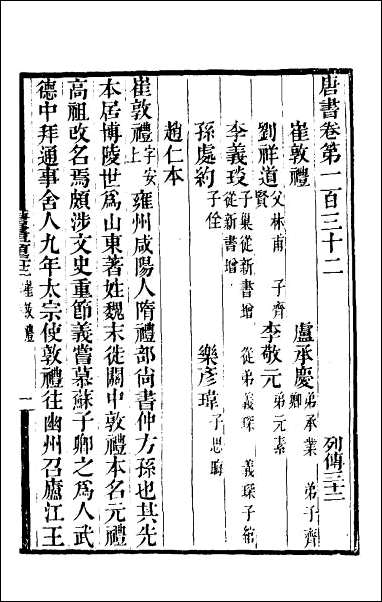 唐書卷第一百三十二 列傳三十二
崔敦禮 盧承慶弟承業 弟子齊卿
劉祥道父林甫 子齊賢 李敬元弟元素
李義琰子巢從新書增 從弟義琛 義琛子綰從新書增
孫處約子佺 樂彥瑋子思晦
趙仁本
崔敦禮字安上雍州咸陽人隋禮部尚書仲方孫也其先
本居博陵世爲山東著姓魏末徙關中敦禮本名元禮
高祖改名焉頗涉文史重節義嘗慕蘇子卿之爲人武
德中拜通事舍人九年太宗使敦禮往幽州召廬江王
崔敦禮 一